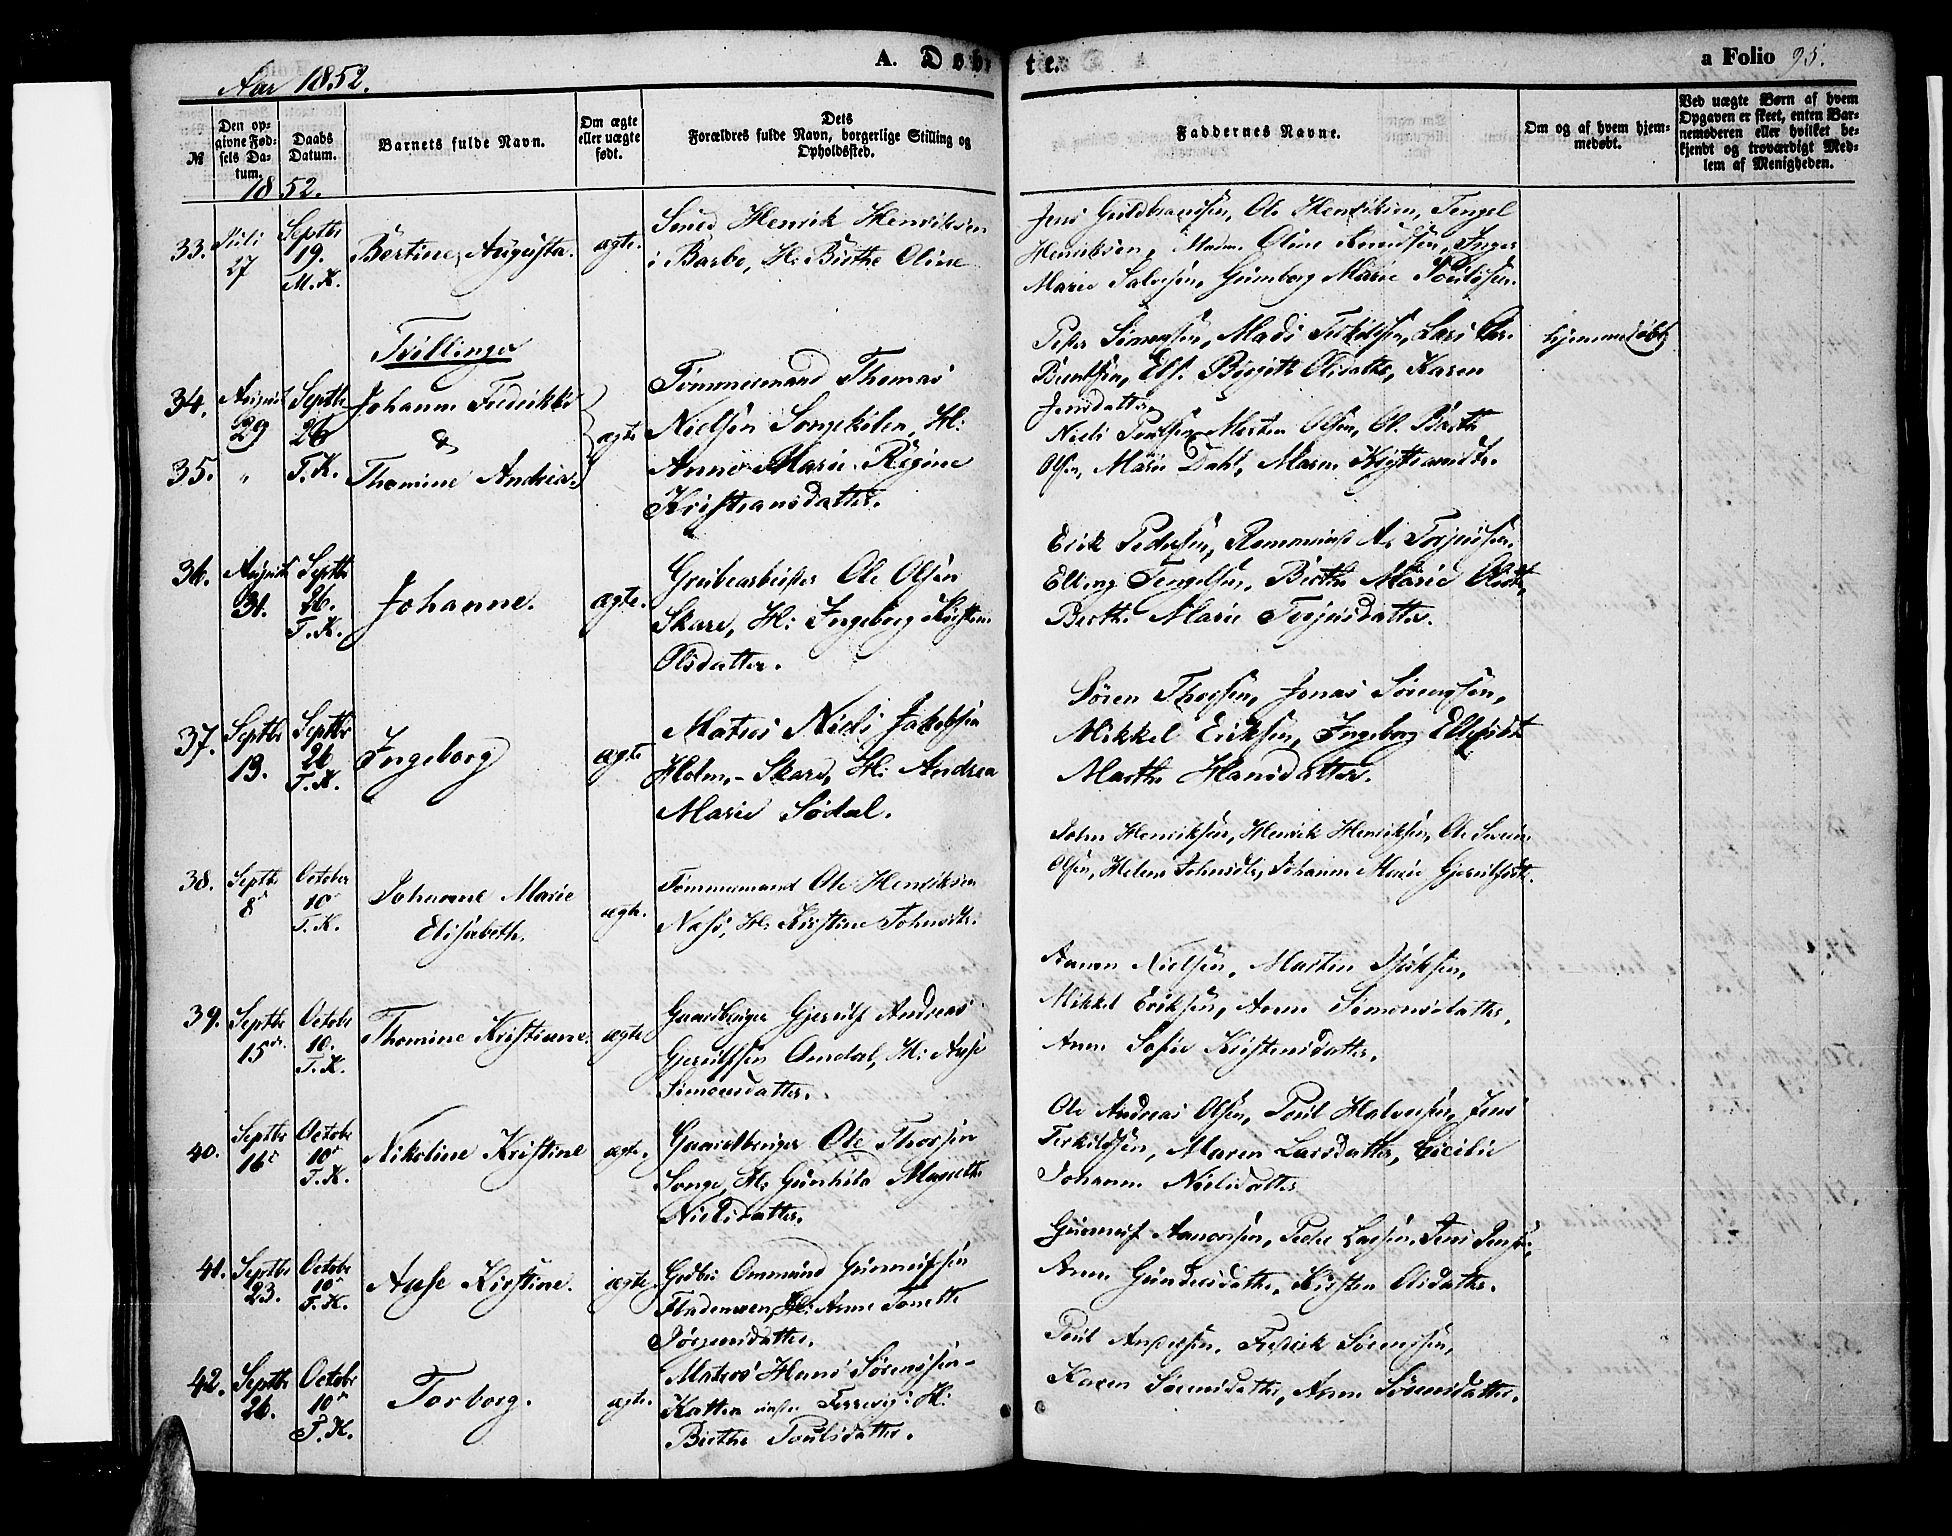 Aar 1852.
A. Døbte.
a Folio 95.
№
Den opgivne Fødsels Datum.
Daabs Datum.
Barnets fulde Navn.
Om ægte eller uægte født.
Dets Forældres fulde Navn, borgerlige Stilling og Opholdssted.
Faddernes Navne.
Om og af hvem hjemmedøbt.
Ved uægte Børn af hvem Opgaven er skeet, enten Barnemoderen eller hvilket bekjendt og troværdigt Medlem af Menigheden.
1852.
33. Juli 27 Septbr 19. M.K. Bertine Augusta. ægte.
Smed Henrik Henriksen
i Barbo, H: Birthe Oline
Ole Henriksen, Tengel
Henriksen, Mdm. Oline Knudsen, Inger
Marie Salvesen, Gunborg Marie
Tvillinger
34. August 29 Septbr 26 T.K. Johanne Fredrikke
&
35. " Thomine Andrea. ægte
Tømmermand Thomas
Nielsen Songekilen, H:
Anne Marie Regine
Kristiansdatter.
Peder Simonsen, Mads Terkelsen, Lars
Berntsen, Els. Birgitte Olsdatter, Karen
Jensdatter
Niels Poulsen, Morten Olsen, Ol. Berth
Olsen, Marie Dahl, Maren
hjemmedøbt
36. August 31. Septbr 26. T.K. Johanne. ægte.
Grubearbeider Ole Olsen
Skare, H: Ingeborg Kirstine
Olsdatter.
Erik Pedersen, A. Torjusen,
Elling Tengelsen, Birthe Marie
Berthe Marie Torjusdatter.
37. Septbr 13. Septbr 26 T.K. Ingeborg ægte
Matros Niels Jakobsen
Holm, - Skare, H: Andrea
Marie Sødal.
Søren Thorsen, Jonas Sørensen,
Mikkel Eriksen, Ingeborg
Marthe Hansdatter.
38. Septbr 8de October 10de T.K. Johanne Marie
Elisabeth. ægte.
Tømmermand Ole Henriksen
Næss, H: Kirstine Johnsdtr.
John Henriksen, Henrik Henriksen, Ole
Olsen, Helene Johnsdtr, Johanne Marie
39. Septbr 15de October 10. T.K. Thomine Kristiane. ægte
Gaardbruger Gjerulf Andreas
Gjerulfsen Omdal, H: Aase
Simonsdatter.
Aanon Nielsen, Martin
Mikkel Eriksen, Anne Simonsdatter,
Anne Sofie Kristensdatter.
40. Septbr 16de October 10de T.K. Nikoline Kristine ægte.
Gaardbruger Ole Thorsen
Songe, H: Gunhild
Nielsdatter.
Ole Andreas Olsen, Poul Halvorsen, Jens
Terkildsen, Maren Larsdatter, Cicilie
Johanne Nielsdatter
41. Septbr 23. October 10de T.K. Aase Kirstine. ægte
Gdbr. Ommund Gunneufsen
H: Anne Tonette
Jørgensdatter.
Gunneuf Aanonsen, Peder Larsen, Jens Jensen,
Anne Gundersdatter, Kirsten Olsdatter.
42. Septbr 26. October 10de T.K. Torborg. ægte.
Matros Hans Sørensen
H:
Birthe Poulsdatter.
Poul Andersen, Fredrik Sørensen,
Karen Sørensdatter, Anne Sørensdatter.